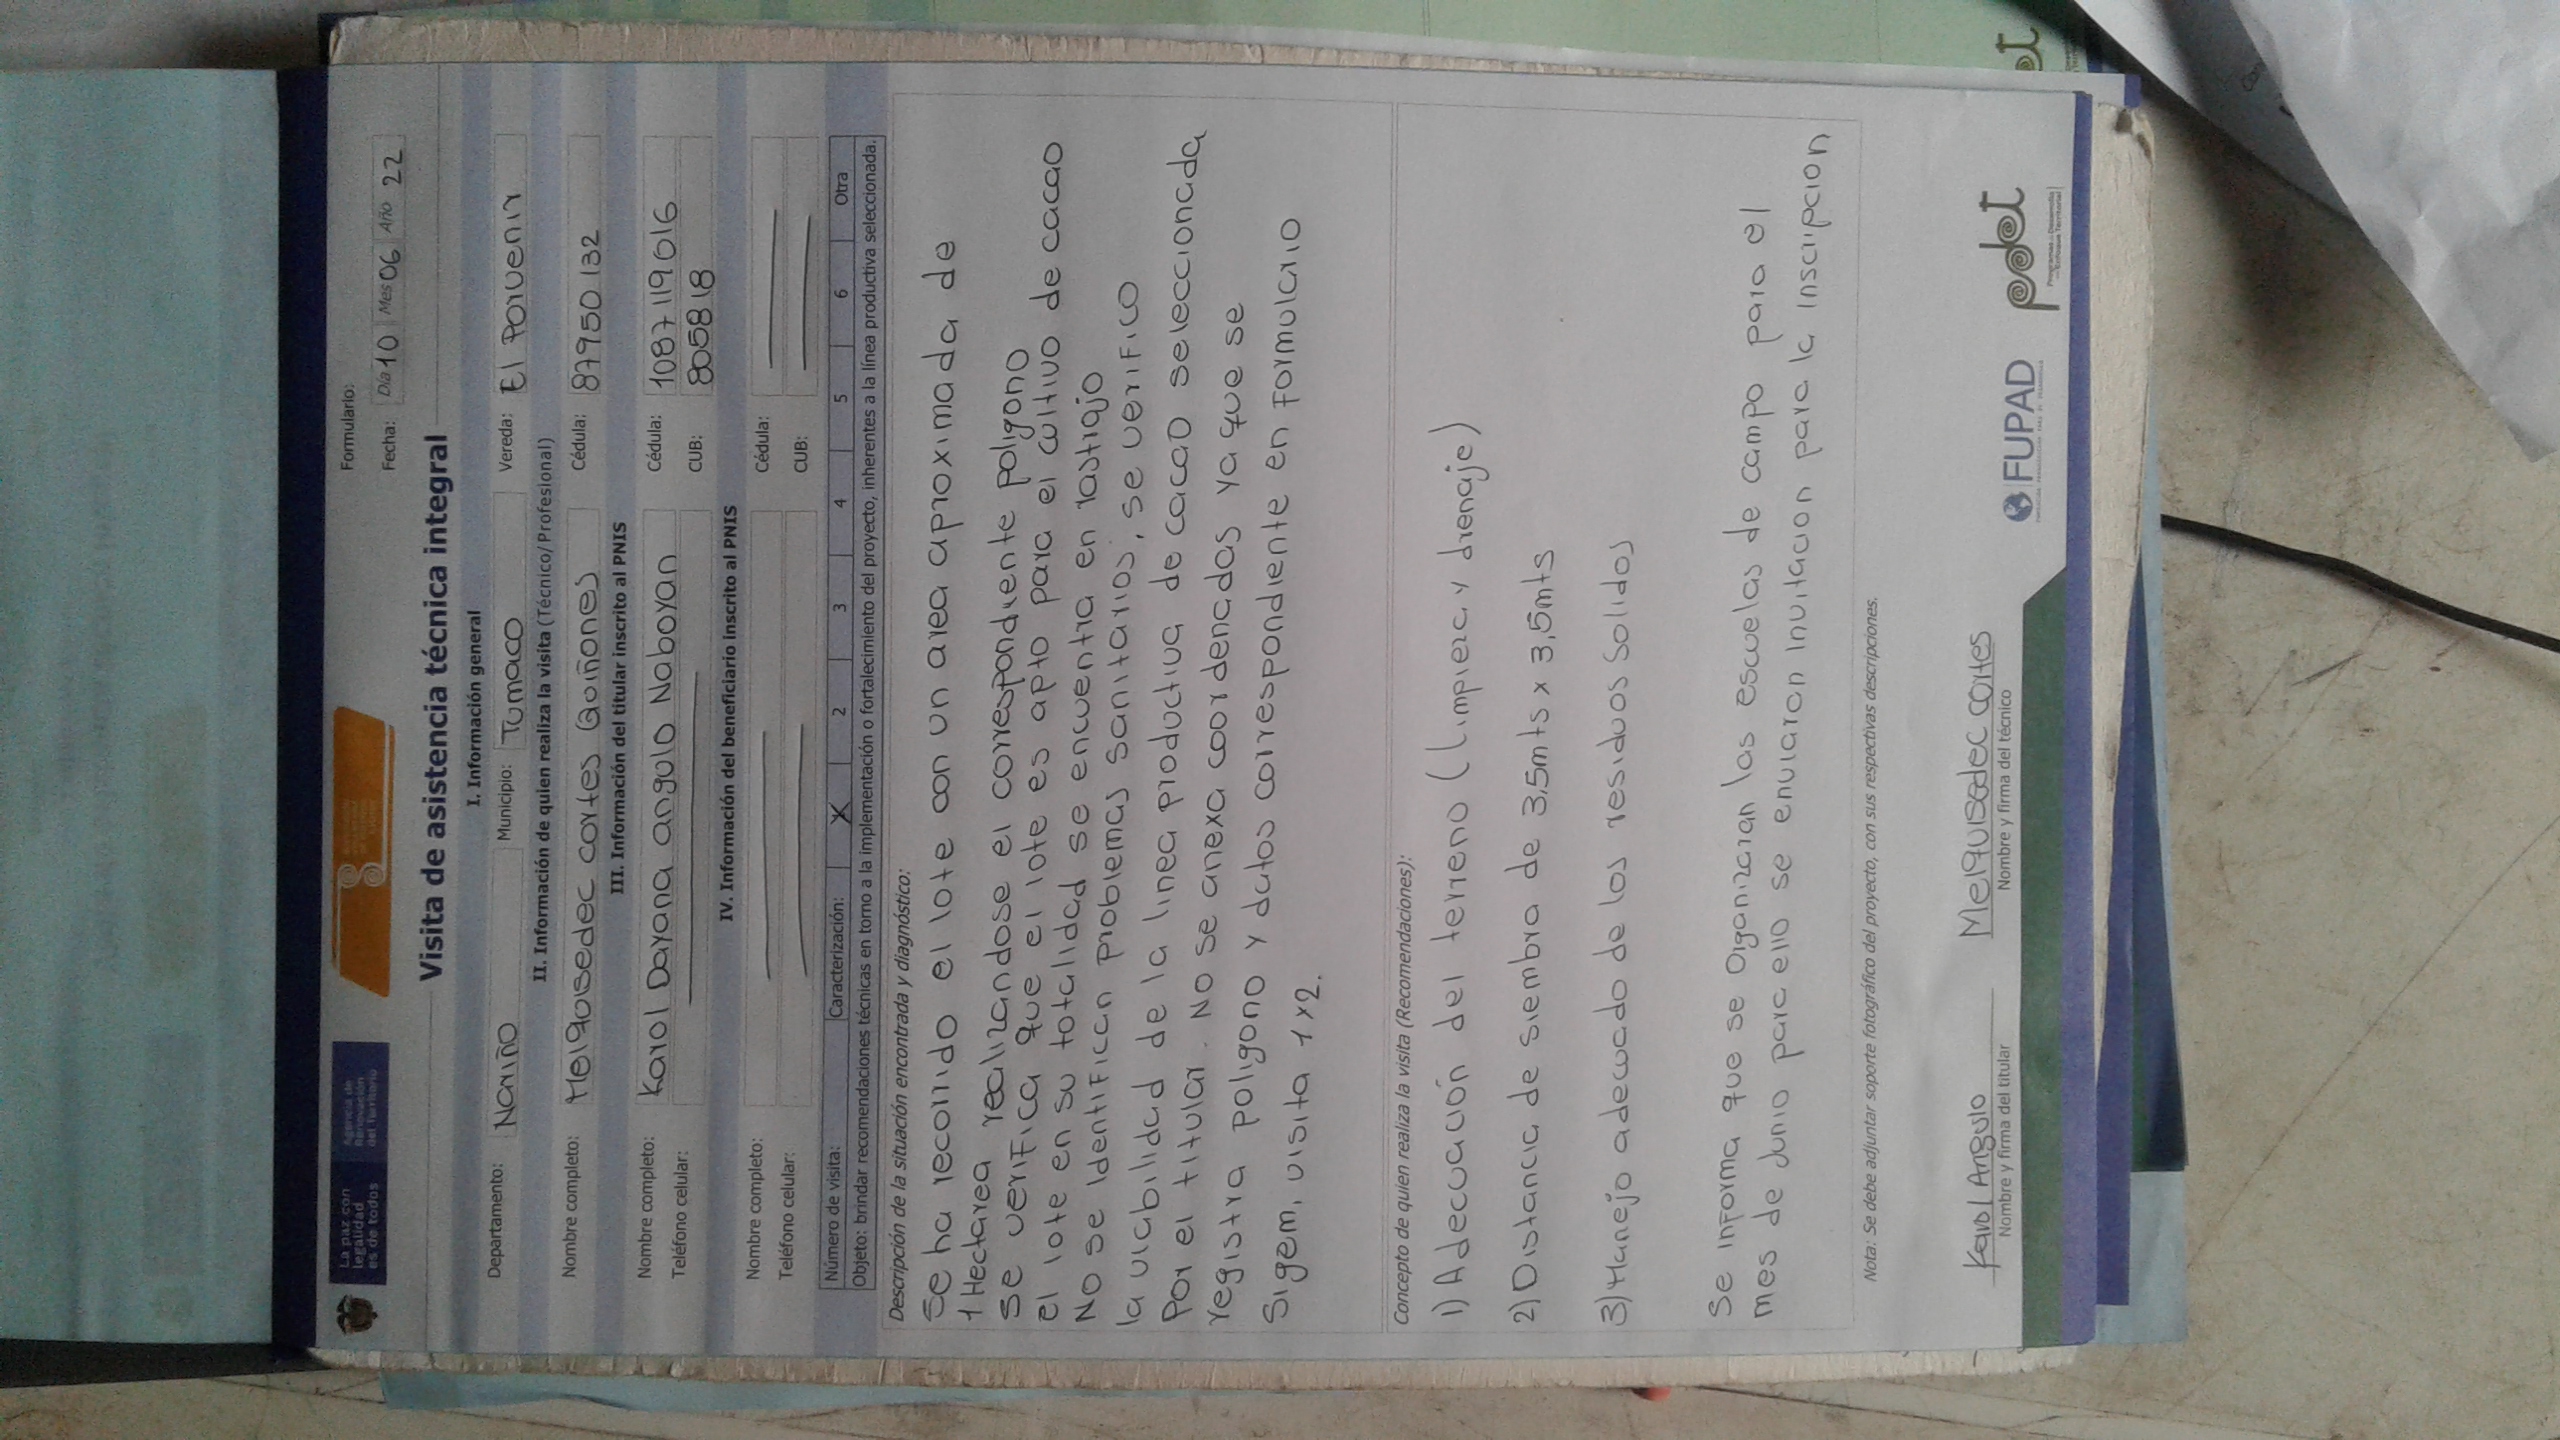 La paz con
legalidad
es de todos
Agencia de
Renovación
del Territorio
Formulario:
Fecha: Día 10 Mes 06 Año 22
Visita de asistencia técnica integral
I. Información general
Departamento: Nariño Municipio: Tumaco Vereda: El Porvenir
II. Información de quien realiza la visita (Técnico/Profesional)
Nombre completo: Melquisedec cortes Quiñones Cédula: 87950132
III. Información del titular inscrito al PNIS
Nombre completo: Karol Dayana angulo Naboyan Cédula: 1087119616
Teléfono celular: CUB: 805818
IV. Información del beneficiario inscrito al PNIS
Nombre completo: Cédula:
Teléfono celular: CUB:
Número de visita: Caracterización: X 2 3 4 5 6 Otra
Objeto: brindar recomendaciones técnicas en torno a la implementación o fortalecimiento del proyecto, inherentes a la línea productiva seleccionada.
Descripción de la situación encontrada y diagnóstico:
Se ha recorrido el lote con un area aproximada de
1 Hectarea realizandose el correspondiente poligono
Se verifica que el lote es apto para el cultivo de cacao
el lote en su totalidad se encuentra en rastrojo
No se identifican problemas sanitarios, se verifico
la viabilidad de la linea productiva de cacao seleccionada
Por el titular. No se anexa coordenadas ya que se
registra poligono y datos correspondiente en formulario
Sigem, visita 1x2.
Concepto de quien realiza la visita (Recomendaciones):
1) Adecuación del terreno (Limpieza y drenaje)
2) Distancia de siembra de 3,5mts x 3,5mts
3) Manejo adecuado de los residuos Solidos
Se informa que se Organizaran las escuelas de campo para el
mes de Junio para ello se enviaron invitacion para la inscripcion
Nota: Se debe adjuntar soporte fotográfico del proyecto, con sus respectivas descripciones.
Karol Angulo Melquisedec cortes
Nombre y firma del titular Nombre y firma del técnico
FUPAD
pdet
Programas de Desarrollo
con Enfoque Territorial